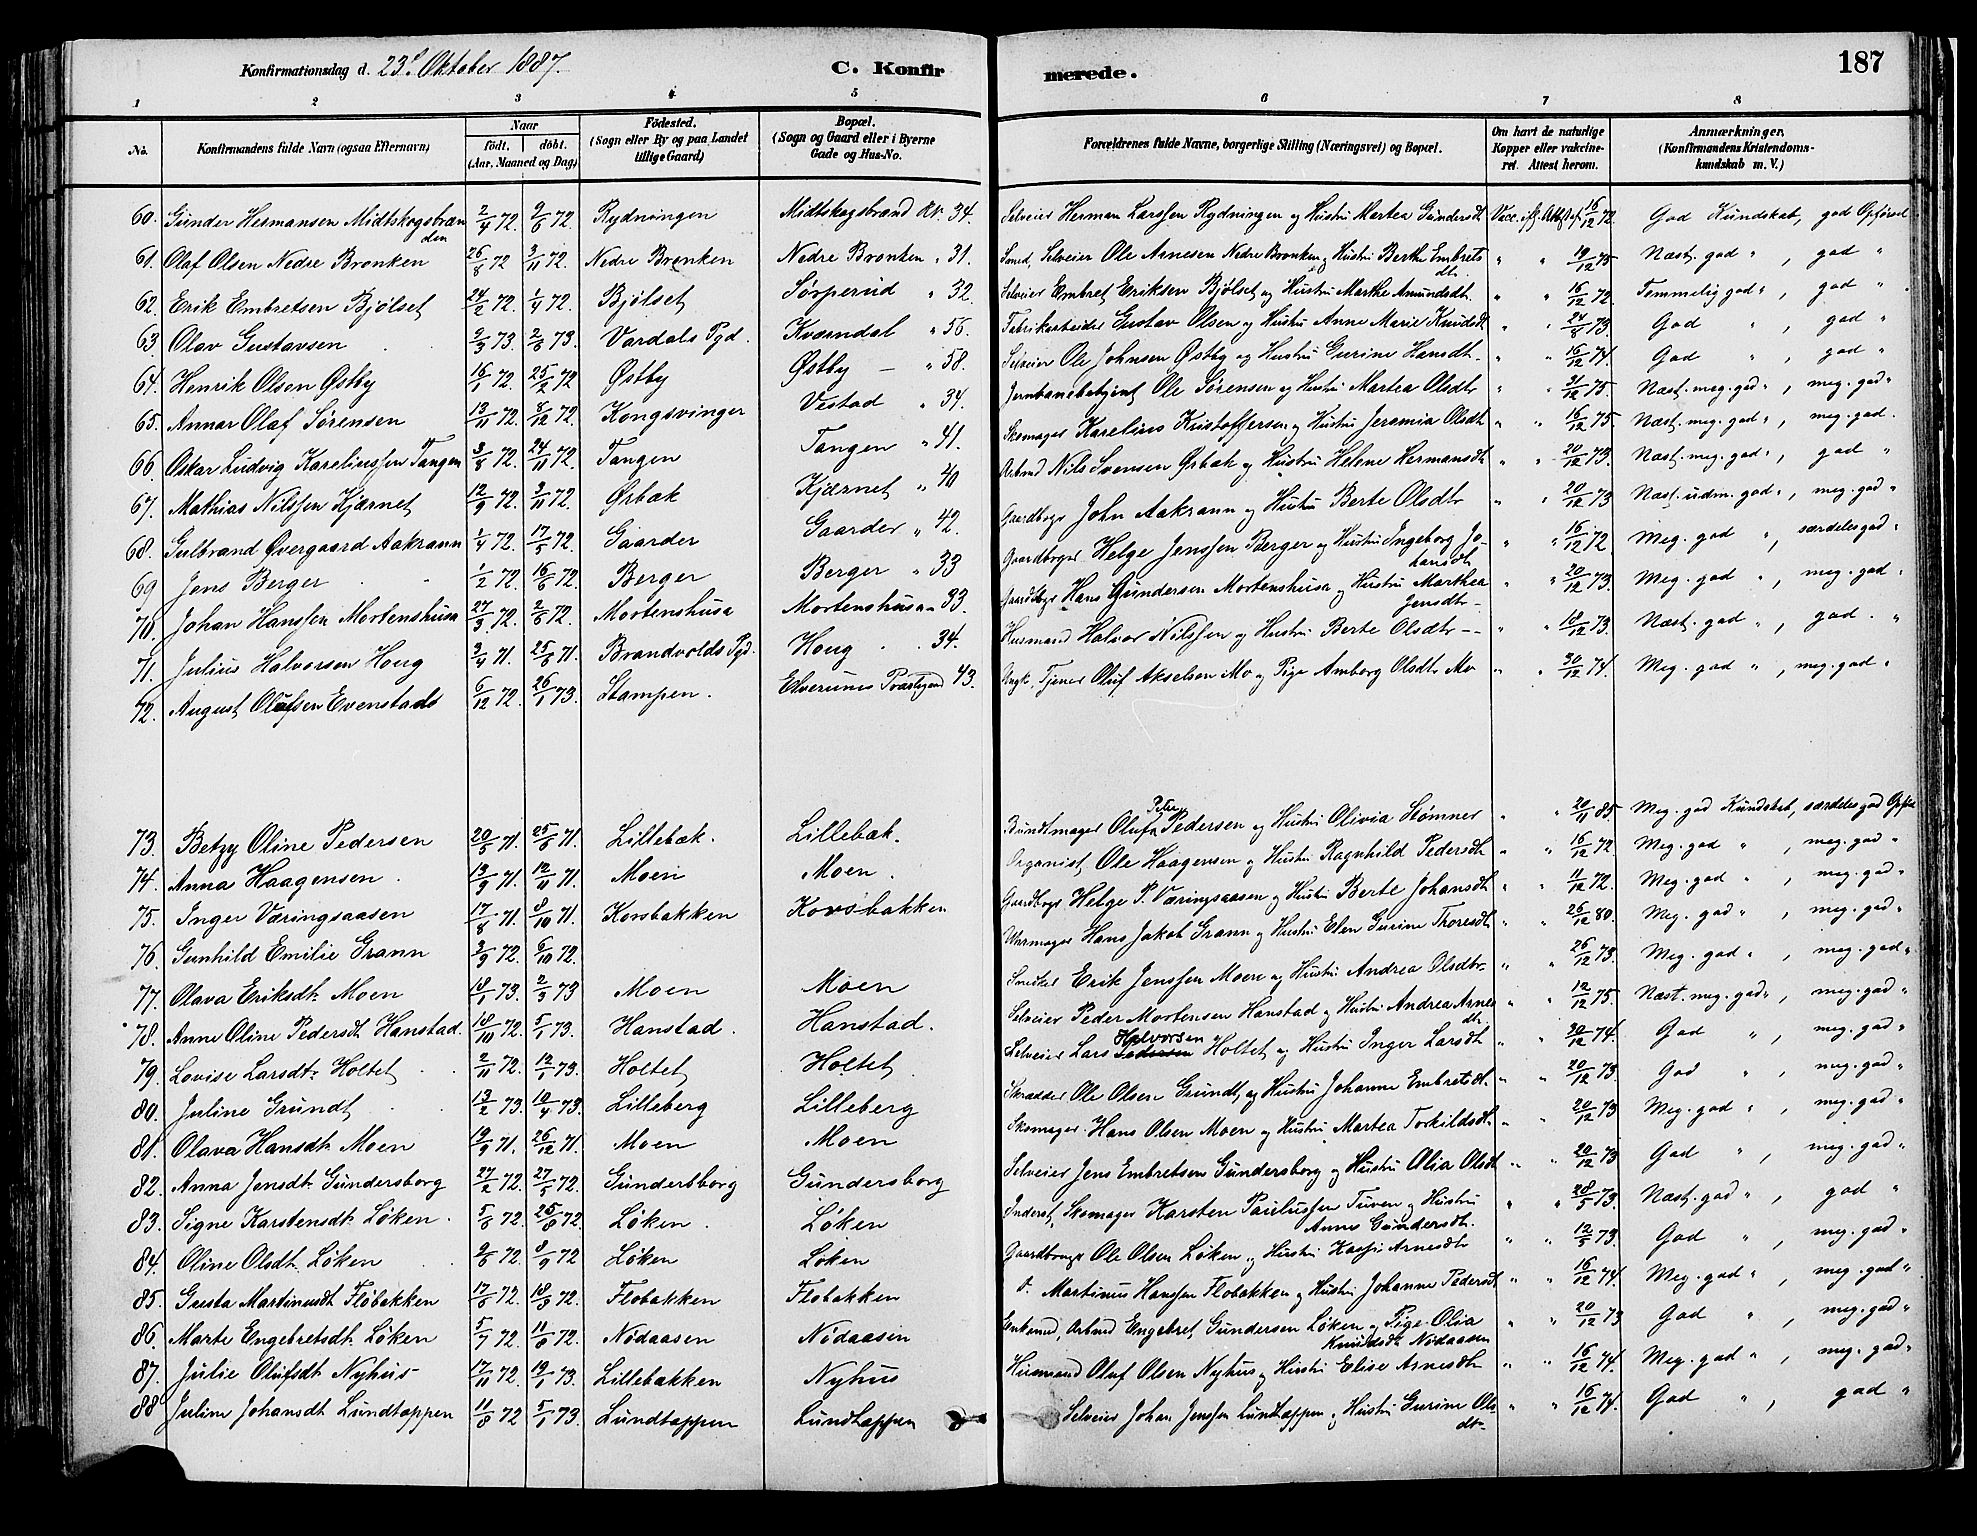 Konfirmationsdag d. 23d Oktober 1887. C. Konfirmerede. 187
1 2 3 4 5 6 7 8
No. Konfirmandens fulde Navn (ogsaa Efternavn) Naar født. døbt. (Aar, Maaned og Dag) Fødested. (Sogn eller By og paa Landet tillige Gaard) Bopæl. (Sogn og Gaard eller i Byerne Gade og Hus-No. Forældrenes fulde Navne, borgerlige Stilling (Næringsvei) og Bopæl. Om havt de naturlige Kopper eller vakcineret. Attest herom. Anmærkninger, (Konfirmandens Kristendomskundskab m. V.)
60. Gunder Hermansen Midtskogsbrænden 2/4 72. 9/6 72. Rydningen Midtskogsbrand Kv. 34. Selveier Herman Larssen Rydningen og Hustri Martea Gundersdt Vacc. 16/12 72. God Kundskab, god Opførsel
61. Olaf Olsen Nedre Bronken 26/8 72 3/11 72. Nedre Bronken Nedre Bronken " 31. Smed, Selveier Ole Arnesen Nedre Bronken og Hustri Berthe Embretsdtr. " " 19/12 75 Næst. god " , god "
62. Erik Embretsen Bjölset 24/2 72. 1/4 72. Bjölset Sörperud " 32. Selveier Embret Eriksen Bjölset og Hustri Marthe Amundsdt. " " 16/12 72. Temmelig god " , god "
63 Olav Gustavsen 2/3 73. 2/6 73. Vardals Pgd. Kværndal " 56. Fabrikarbeider Gustav Olsen og Hustri Anne Marie Knudsdt " " 24/8 73. God " , god "
64. Henrik Olsen Østby 16/1 72. 25/2 72 Østby Østby — " 58. Selveier Ole Johnsen Østby og Hustri Gurine Hansdt. " " 16/12 74. God " , god "
65. Annar Olaf Sörensen 13/11 72. 8/12 72. Kongsvinger Vestad " 34. Jernbanebetjent Ole Sörensen og Hustri Martea Olsdtr " " 21/12 75. Næst. meg. god " , meg. god "
66. Oskar Ludvig Kareliussen Tangen 3/8 72. 24/11 72. Tangen Tangen " 41. Skomager Karelius Kristoffersen og Hustri Jeremia Olsdt " " 16/12 75. Næst. meg. god " , meg. god.
67. Mathias Nilssen Kjærnet 12/9 72. 3/11 72. Ørbæk Kjærnet " 40 Arbmd Nils Svensen Ørbæk og Hustri Helene Hermansdt " " 20/12 73. Næst. meg. god " , god "
68. Gulbrand Øvergaard Aakrann 1/4 72. 17/5 72. Gaarder Gaarder " 42. Gaardbrgr John Aakrann og Hustri Berte Olsdtr " " 20/12 73 Næst. udm. god " , meg. god "
69 Jens Berger 1/2 72. 16/6 72. Berger Berger " 33 Gaardbruger Helge Jenssen Berger og Hustri Ingeborg Johansdt " " 16/12 72 Meg. god " , særdeles god "
70. Johan Hanssen Mortenshusa 27/3 72. 2/6 72. Mortenshusa Mortenshusa " 33. Gaardbrgr Hans Gundersen Mortenshusa og Hustri Marthea Jensdtr " " 20/12 73. Meg. god " , meg. god "
71. Julius Halvorsen Houg 2/4 71. 25/6 71. Brandvolds Pgd. Houg " 34. Husmand Halvor Nilssen og Hustri Berte Olsdtr " " 18/12 73. Næst. god " , god "
72. August Olufsen Evenstads 6/12 72. 26/1 73. Stampen. Elverums Præstegaard 43. Ungk, Tjener Oluf Akselsen Mo og Pige Amborg Olsdtr Mo " " 30/12 74. Meg. god " , meg. god "
73. Betzy Oline Pedersen 20/5 71. 25/6 71. Lillebæk. Lillebæk. Bundtmager Oluf Peter Pedersen og Hustri Olivia Stömner " " 20/11 85 Meg. god Kundskab, særdeles god Opfør
74. Anna Haagensen 13/9 71. 12/11 71. Moen Moen. Organist Ole Haagensen og Hustri Ragnhild Pedersdt " " 16/12 72. Meg. god " , meg. god "
75. Inger Væringsaasen 17/8 71. 8/10 71. Korsbakken Korsbakken Gaardbrgr Helge P. Væringsaasen og Hustri Berte Johansdt " " 4/12 72. Meg. god " , meg. god "
76. Gunhild Emilie Grann 2/9 72. 6/10 72. Uhrmager Hans Jakob Grann og Hustri Elen Gurine Thoresdt " " 26/12 80. Meg. god " , meg. god "
77. Olava Eriksdt. Moen 18/1 73. 2/3 73 Moen Moen Erik Jenssen Moen og Hustri Andrea Olsdtr " " 26/12 73. Meg. god " , meg. god "
78. Anne Oline Pedersdt Hanstad. 18/10 72. 5/1 73. Hanstad. Hanstad. Selveier Peder Mortensen Hanstad og Hustri Andrea Arnesdtr. " " 12/12 75. Næst. meg. god " , meg. god "
79. Lovise Larsdt. Holtet 2/11 72. 12/1 73. Holtet Holtet Selveier Lars Halvorsen Holtet og Hustri Inger Larsdt " " 20/12 74. God " , meg. god "
80. Juline Grundt 13/2 73. 10/4 73. Lilleberg Lilleberg Skrædder Ole Olsen Grundt og Hustri Johanne Embretsdt. " " 20/12 73. God " , meg. god "
81. Olava Hansdt. Moen 19/9 71. 26/12 71. Moen Moen Skomager Hans Olsen Moen og Hustri Martea Torkildsdt. " " 20/12 73 Meg. god " , meg. god "
82. Anna Jensdt. Gundersborg 27/2 72. 27/5 72. Gundersborg Gundersborg Selveier Jens Embretsen Gundersborg og Hustri Olia Olsdt " " 20/12 73 God " , meg. god "
83. Signe Karstensdt. Löken 5/6 72. 25/8 72. Löken Löken Inderst, Skomager Karsten Paulussen Tuven og Hustri Anne Gundersdt. " " 28/5 73. Næst. god " , god "
84. Oline Olsdt. Löken 2/6 72. 8/9 72 Löken Löken Gaardbrugr Ole Olsen Löken og Hustri Arnesdt " " 12/5 73. God " , meg. god "
85. Gusta Martinusdt Flöbakken 17/6 72. 18/8 72. Flobakken Flobakken Martinus Hanssen Flobakken og Hustri Johanne Pedersdt " " 16/12 74. Meg. god " , meg. god "
86. Marte Engebretsdt. Löken 5/7 72. 11/8 72. Nödaasen Nödaasen Enkemd, Arbmd Engebret Gundersen Löken og Pige Olia Knudsdt. Nödaasen " " 20/12 73 God " , meg. god "
87. Julie Olufsdt Nyhus 17/11 72. 19/1 73. Lillebakken Nyhus Husmand Oluf Olsen Nyhus og Hustri Elise Arnesdt " " 16/12 74. Meg. god " , meg. god "
88 Juline Johansdt Lundtoppen 11/8 72 5/1 73. Lundtoppen Lundtoppen Selveier Johan Jenssen Lundtoppen og Hustri Gurine Olsdtr " " 16/12 74. God " , god "